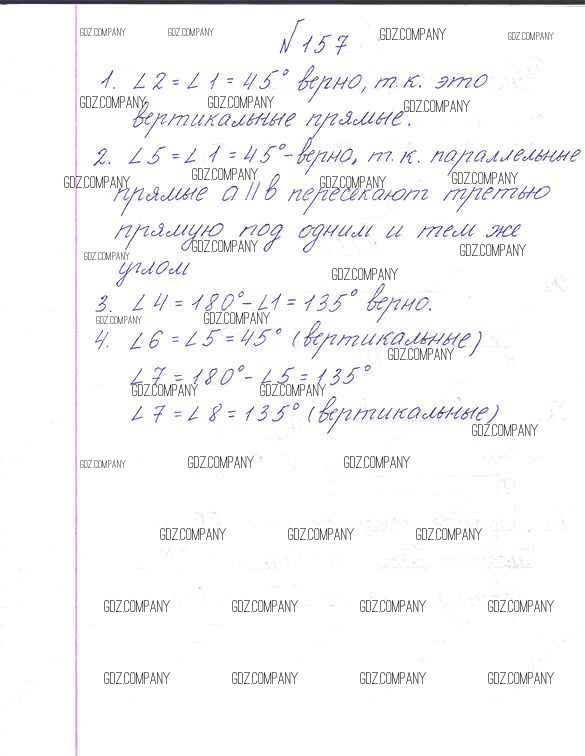 GDZ.COMPANY GDZ.COMPANY GDZ.COMPANY GDZ.COMPANY
N 157
1. ∠2 = ∠1 = 45° верно, т.к. это
GDZ.COMPANY GDZ.COMPANY GDZ.COMPANY
вертикальные прямые.
2. ∠5 = ∠1 = 45° - верно, т.к. параллельные
GDZ.COMPANY GDZ.COMPANY GDZ.COMPANY GDZ.COMPANY
прямые a || в пересекают третью
прямую под одним и тем же
GDZ.COMPANY GDZ.COMPANY GDZ.COMPANY
углом
GDZ.COMPANY
3. ∠4 = 180° - ∠1 = 135° верно.
GDZ.COMPANY GDZ.COMPANY
4. ∠6 = ∠5 = 45° (вертикальные)
GDZ.COMPANY
∠7 = 180° - ∠5 = 135°
GDZ.COMPANY GDZ.COMPANY
∠7 = ∠8 = 135° (вертикальные)
GDZ.COMPANY
GDZ.COMPANY GDZ.COMPANY GDZ.COMPANY
GDZ.COMPANY GDZ.COMPANY GDZ.COMPANY
GDZ.COMPANY GDZ.COMPANY GDZ.COMPANY GDZ.COMPANY
GDZ.COMPANY GDZ.COMPANY GDZ.COMPANY GDZ.COMPANY